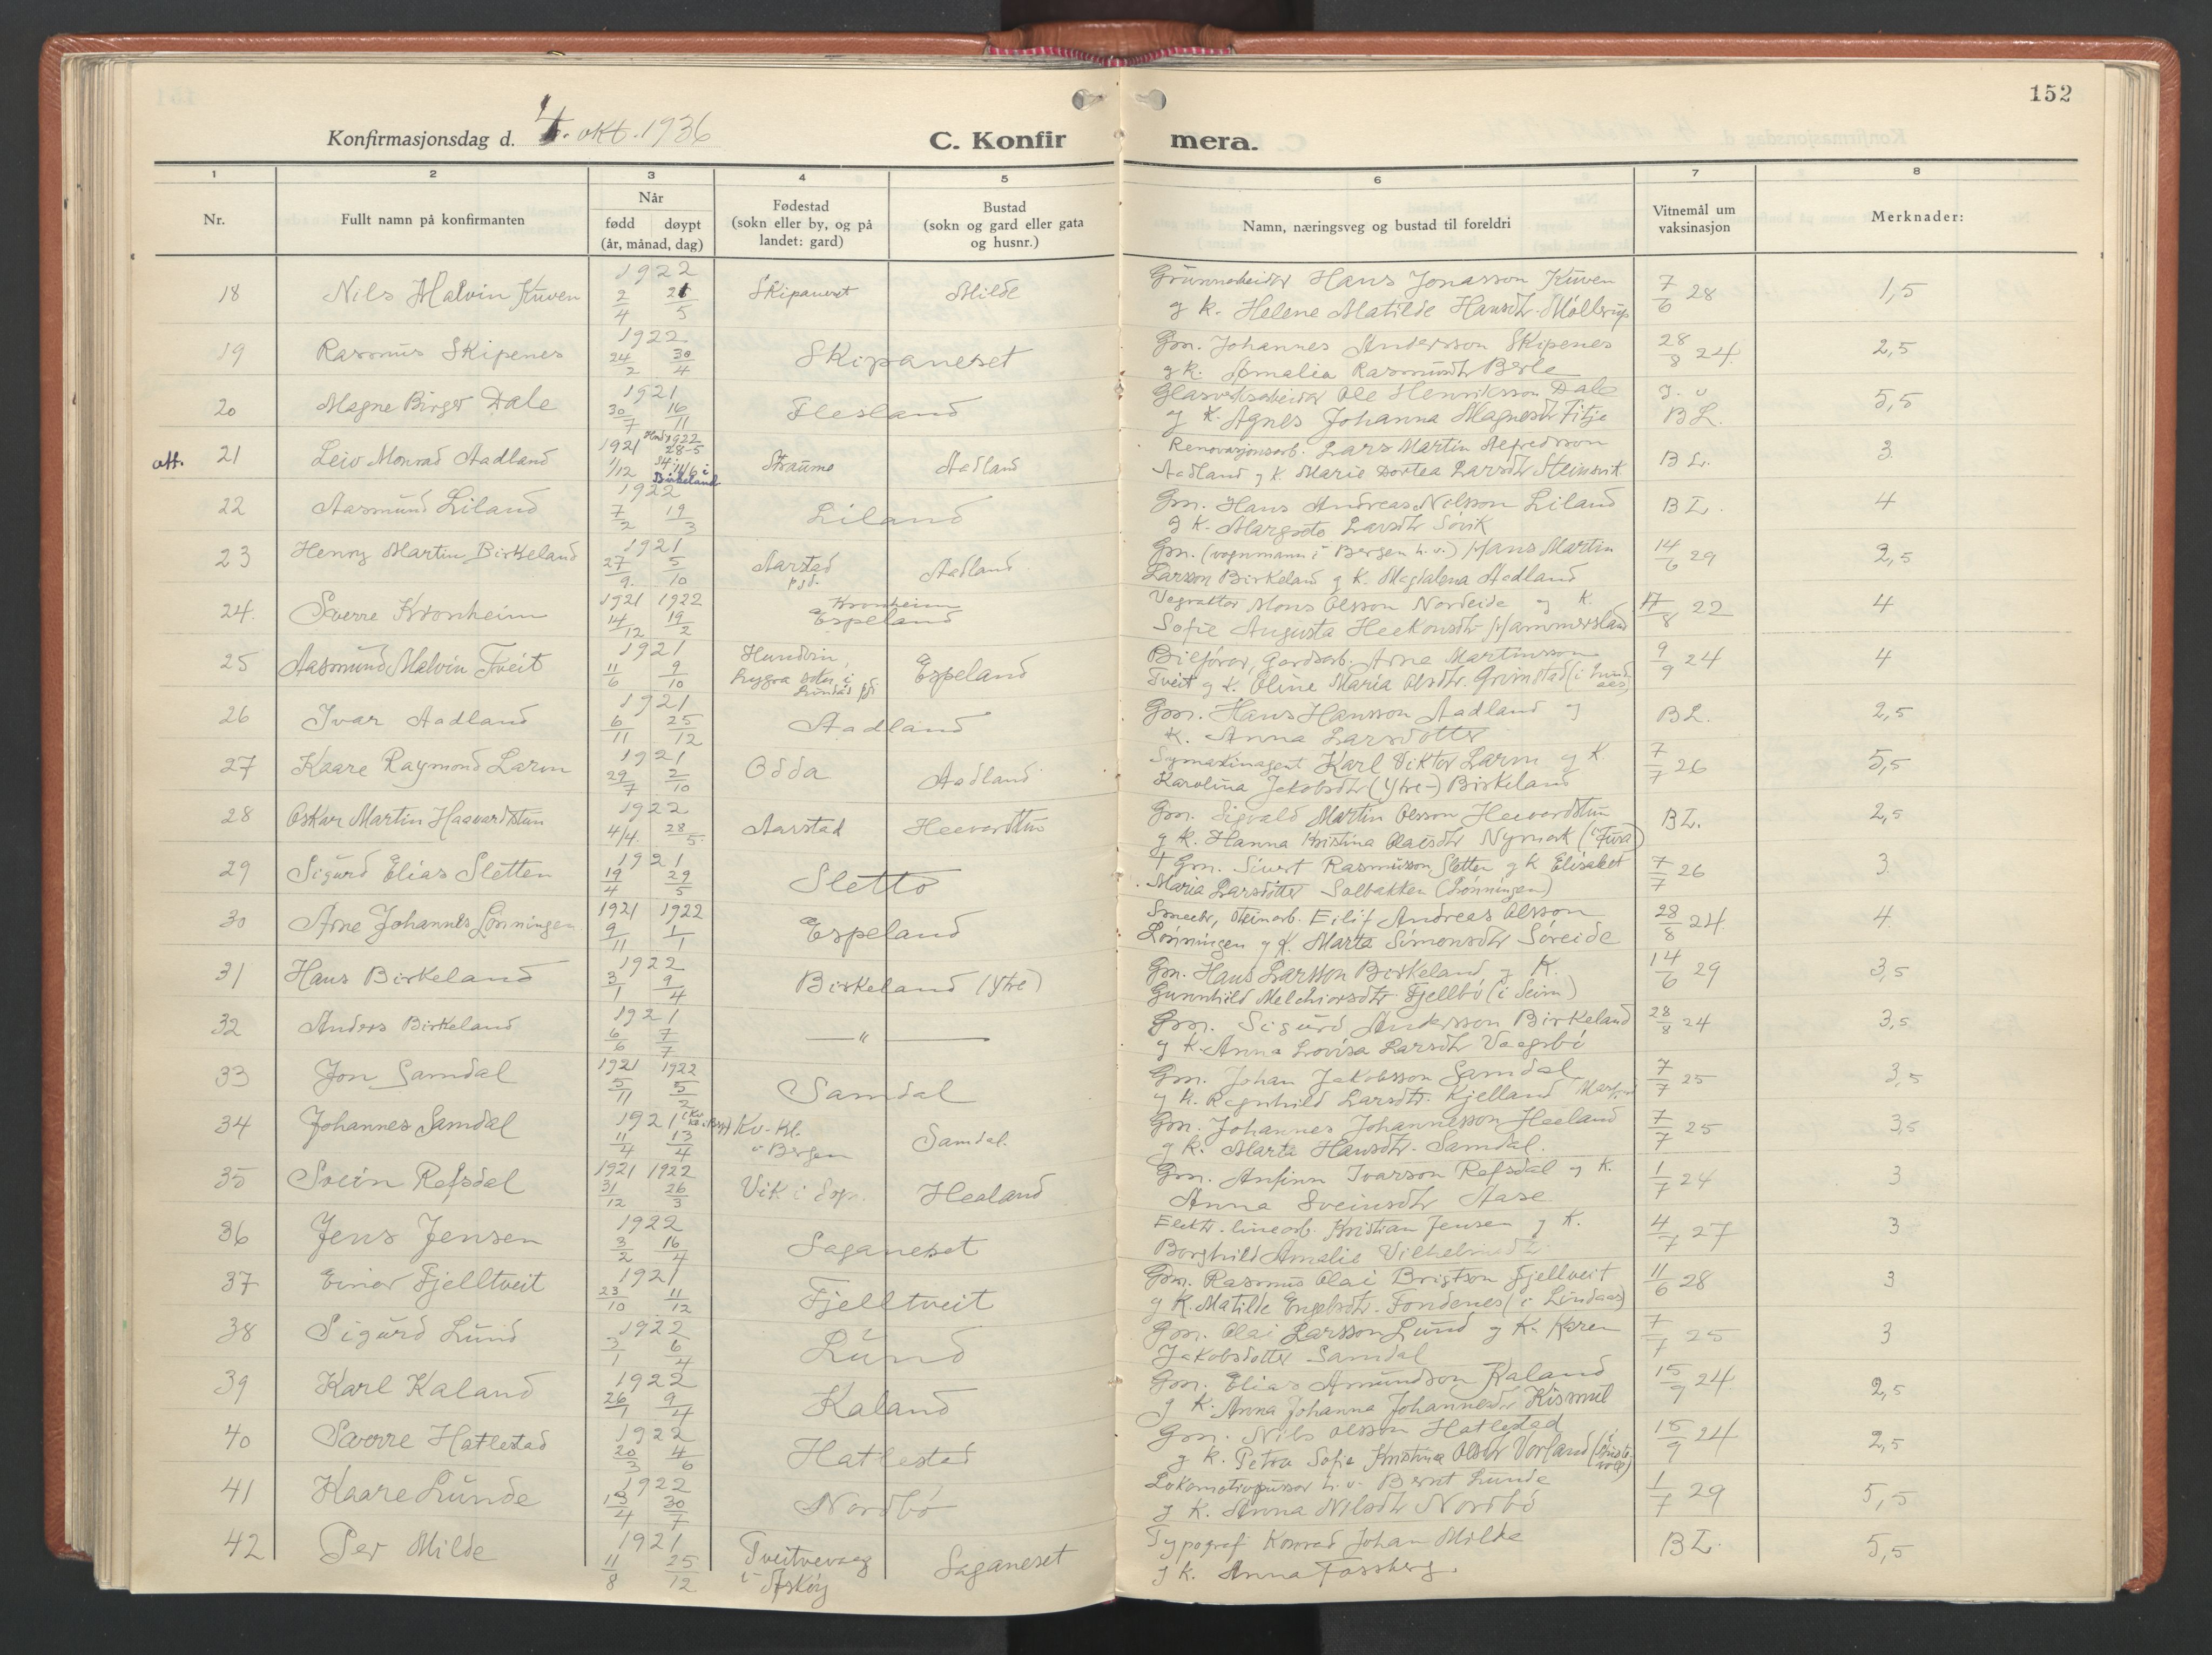 152
Konfirmasjonsdag d. 4. okt. 1936
C. Konfirmera.
1 2 3 4 5 6 7 8
Nr.
Fullt namn på konfirmanten
Når
fødd døypt
(år, månad, dag)
Fødestad
(sokn eller by, og på
landet: gard)
Bustad
(sokn og gard eller gata
og husnr.)
Namn, næringsveg og bustad til foreldri
Vitnemål um
vaksinasjon
Merknader:
18 Nils Malvin Kuven 1922 2/4 21/5 Skipaneset Milde Grunnarbeidar Hans Jonasson Kuven 7/6 28 1,5
g k. Helene Matilde Hansdtr. Møllerup
19 Rasmus Skipenes 1922 24/2 30/4 Skipaneset Gm. Johannes Andersson Skipenes 28/8 24. 2,5
g k. Amalia Rasmusdtr Berle
20 Magne Birger Dale 1921 30/7 16/11 Flesland Glasverksarbeidar Ole Henriksson Dale 5,5
g k. Agnes Johanna Magnesdtr Fitje BL.
att. 21 Leiv Monrad Aadland 1921 1/12 1922 28-5 St. 1/6 i Birkeland Straume Aadland Renovasjonsarb. Lars Martin Alfredsson BL. 3.
Aadland g k. Marie Dortea Larsdtr Steinsvik
22 Aasmund Liland 1922 7/2 19/3 Liland Gm. Hans Andreas Nilsson Liland BL. 4
g k. Margreta Larsdtr Søvik
23 Henry Martin Birkeland 1921 27/9. 5/10 Aarstad psd. Aadland. Gm. (vognmann i Bergen h. v.) Hans Martin 14/6 29 2,5
Larsson Birkeland g k. Magdalena Aadland
24. Sverre Kronheim 1921 14/12 1922 19/2 Kronheim Espeland Vegvaktar Mons Olsson Nordeide g k. 17/8 22 4
Sofie Augusta Haakonsdtr Hammersland
25 Aasmund Malvin Tveit 1921 11/6 9/10 Hundvin, Lygra sokn i Lindås psd. Espeland Bilførar, Gardsarb. Arne Martinsson 9/9 24 4
Tveit g k. Oline Maria Olsdtr. Grimstad (i Lindaas)
26 Ivar Aadland 1921 6/11 25/12 Aadland Gm. Hans Hansson Aadland g BL. 2,5
k. Anna Larsdotter
27 Kaare Raymond Larm 1921 29/7 2/10 Odda Aadland Symaskinagent Karl Viktor Larm g k 7/7 26 5,5
Karolina Jakobsdtr (Ytre-) Birkeland
28 Oskar Martin Haavardstun 1922 4/4. 28/5. Aarstad Haavardstun Gm. Sigvald Martin Olsson Haavardstun BL. 2,5
g k. Hanna Kristina Olaisdtr Nymark (i Fusa)
29 Sigurd Elias Sletten 1921 19/4 29/5 Sletto † Gm. Sivert Rasmusson Sletten g k Elisabet 7/7 26 3.
Maria Larsdotter Solbakken (Lønningen)
30 Arne Johannes Lønningen 1921 9/11 1922 1/1 Espeland Smaabr, steinarb. Eilif Andreas Olsson 28/8 24. 4.
Lønningen g k. Marta Simonsdtr Søreide
31 Hans Birkeland 1922 3/1 9/4 Birkeland (Ytre) Gm. Hans Larsson Birkeland g k. 14/6 29 3,5
Gunnhild Melchiorsdtr. Fjellbø (i Seim)
32 Anders Birkeland 1921 6/6 7/7 — " — Gm. Sigurd Andersson Birkeland 28/8 24 3,5
g k. Anna Lovisa Larsdtr Vaagsbø
33 Jon Samdal 1921 5/11 1922 5/2 Samdal Gm. Johan Jakobsson Samdal 7/7 25 3,5
g k. Ragnhild Larsdtr. Kjelland
34 Johannes Samdal 1921 11/4 13/4 Kv.-kl. i Bergen Samdal. Gm. Johannes Johannesson Haaland 7/7 25 3,5
g k. Marta Hansdtr. Samdal.
35 Svein Refsdal 1921 31/12 1922 26/3 Vik i Sogn Haaland Gm. Anfinn Ivarson Refsdal g k. 1/7 24 3
Anna Sveinsdtr Aase
36 Jens Jensen 1922 3/2 16/4 Saganeset Elektr. linearb. Kristian Jensen g k. 4/7 27 3
Borghild Amalie Vilhelmsdtr
37 Einar Fjelltveit 1921 23/10 11/12 Fjelltveit Gm. Rasmus Olai Brigtson Fjellveit 11/6 28 3
g k. Matilde Engelsdtr. Fondenes (i Lindaas)
38 Sigurd Lund 1922 3/1 6/4 Lund Gm. Olai Larsson Lund g k. Karen 7/7 25 3
Jakobsdotter Samdal
39 Karl Kaland 1922 26/1 9/4 Kaland Gm. Elias Amundson Kaland 15/9 24. 2,5
g k. Anna Johanna Johannesdtr Kismul
40 Sverre Hatlestad 1922 20/3 4/6 Hatlestad Gm. Nils Olsson Hatlestad 15/9 24 2,5
g k. Petra Sofie Kristina Olsdtr Vorland
41 Kaare Lunde 1922 13/4 30/7 Nordbø Lokomotivpussar h. v. Bernt Lunde 1/7 29 5,5
g k. Anna Nilsdtr Nordbø
42 Per Milde 1921 11/8 25/12 Tveitvevaag i Askøy Saganeset Typograf Konrad Johan Milde BL. 5,5
g k. Anna Fossberg.